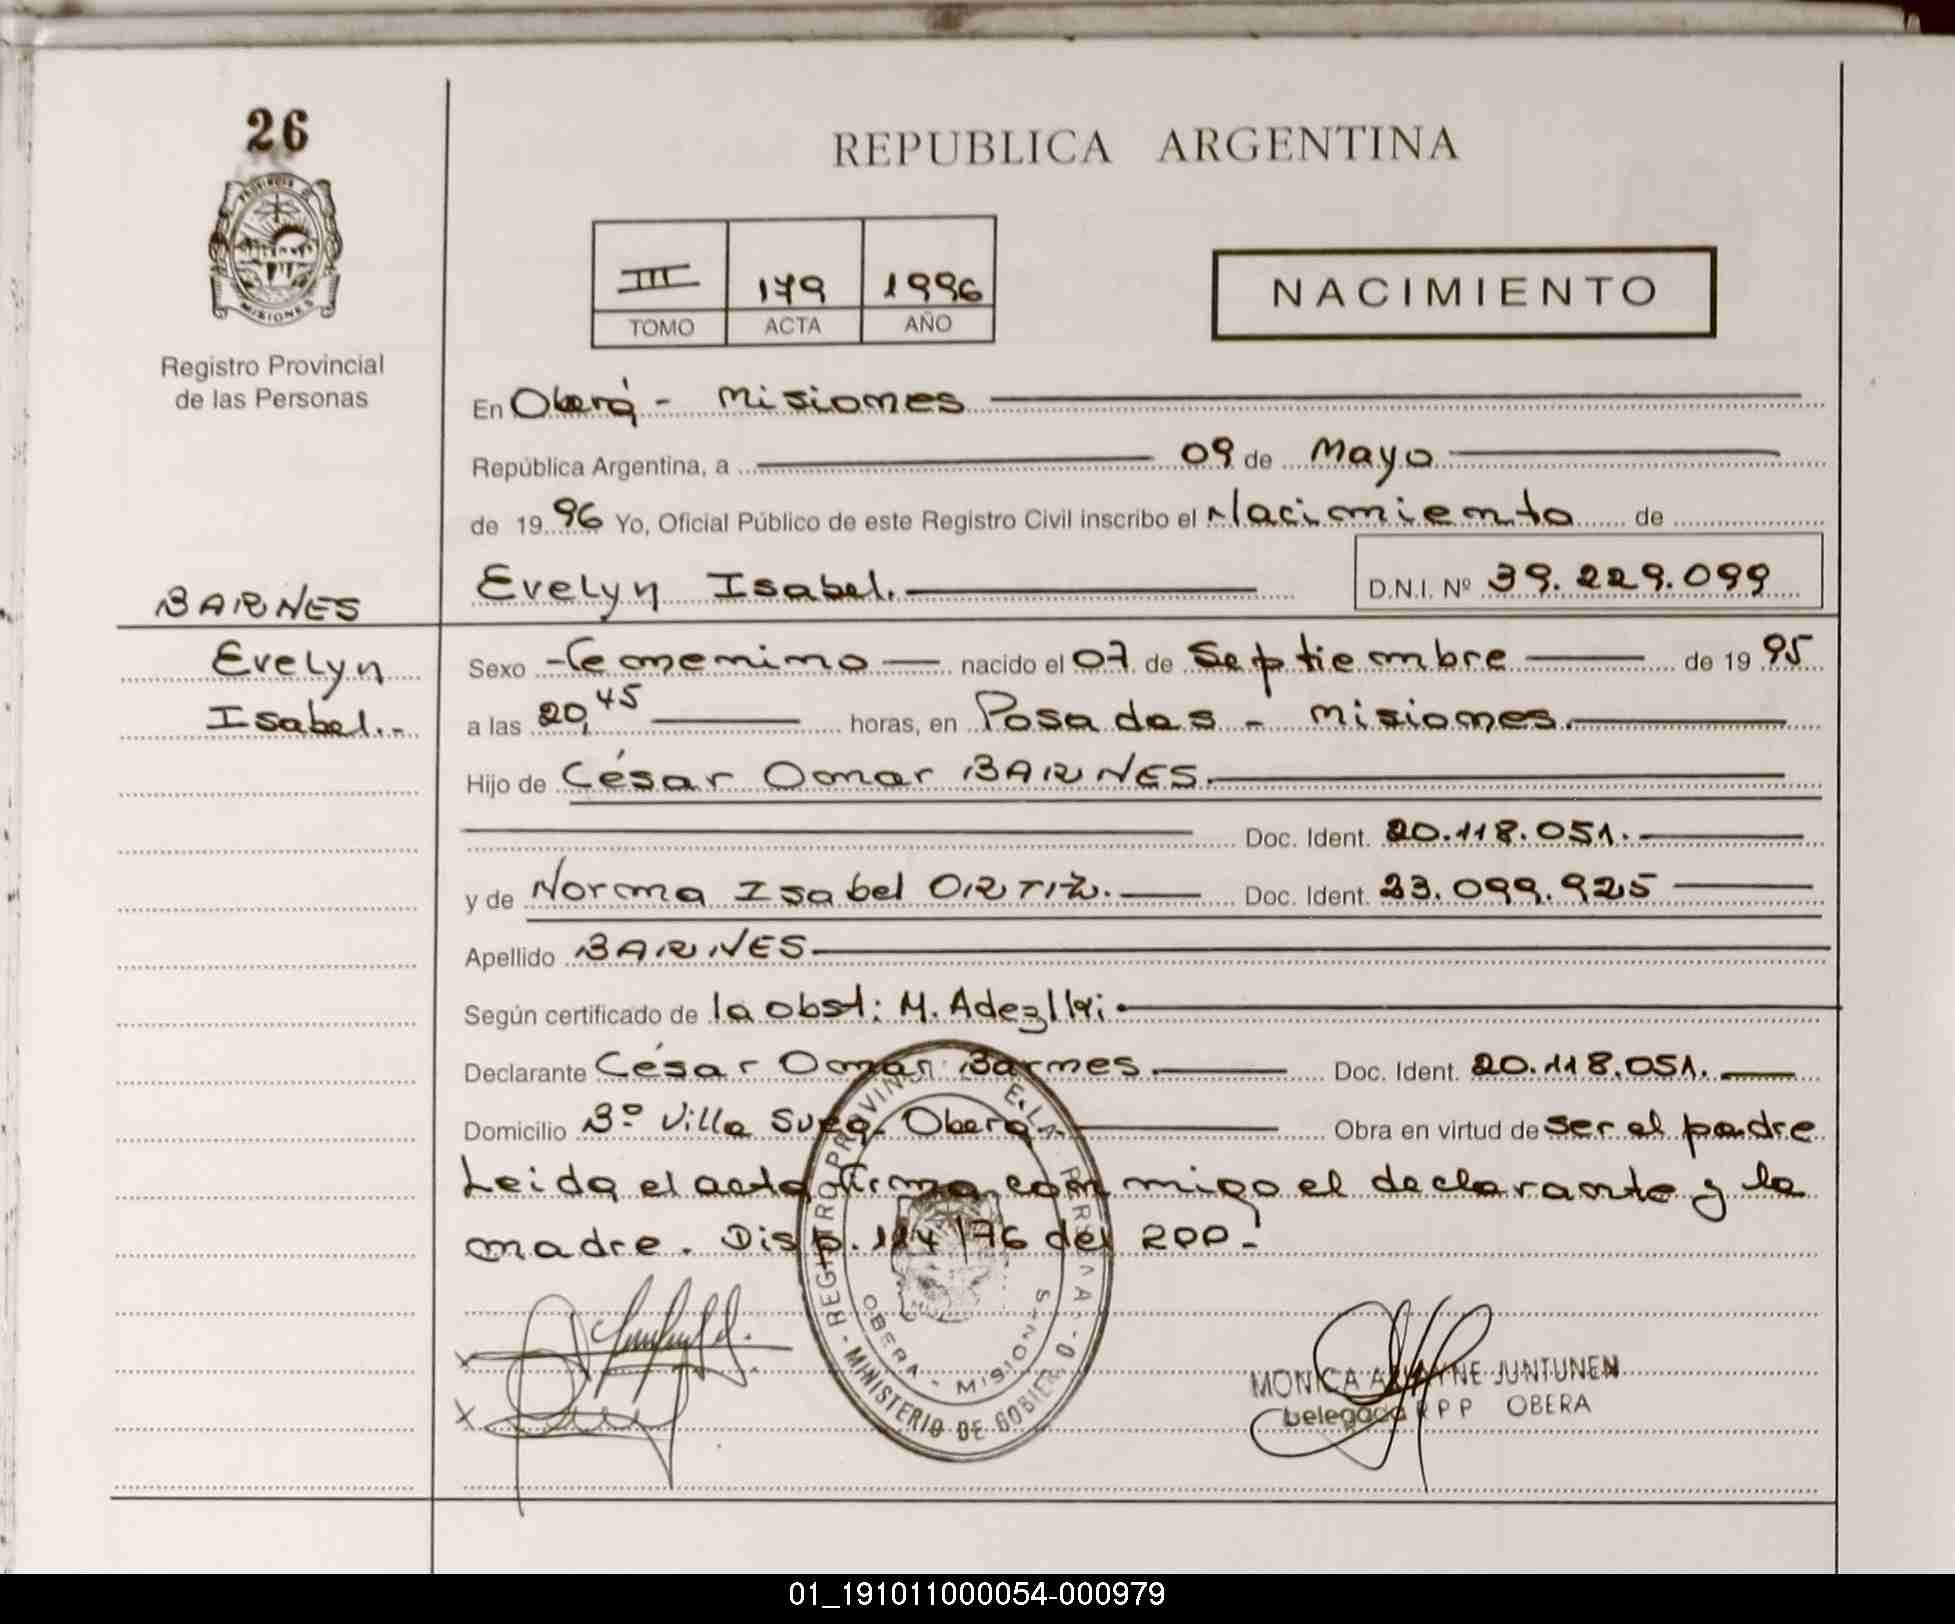 26
REPUBLICA ARGENTINA
PROVINCIA DE
MISIONES
III 179 1996
TOMO ACTA AÑO
NACIMIENTO
Registro Provincial
de las Personas
En Oberá - Misiones
República Argentina, a 09 de Mayo
de 19 96 Yo, Oficial Público de este Registro Civil inscribo el Nacimiento de
BARNES
Evelyn Isabel. D.N.I. Nº 39.229.099
Evelyn
Isabel.-
Sexo Femenino nacido el 07 de Septiembre de 19 95
a las 20,45 horas, en Posadas - Misiones.
Hijo de César Omar BARNES.
Doc. Ident. 20.118.051.
y de Norma Isabel ORTIZ. Doc. Ident. 23.099.925
Apellido BARNES
Según certificado de la obst: M.
Declarante César Omar Barnes Doc. Ident. 20.118.051.
Domicilio Bº Villa Sueca. Oberá. Obra en virtud de ser el padre
Leida el acta firma conmigo el declarante y la
madre. Disp. 114/76 del RPP.-
REGISTRO PROVINCIAL DE LAS PERSONAS
OBERA - MISIONES
MINISTERIO DE GOBIERNO
MONICA JUNTUNEN
Delegada RPP OBERA
01_191011000054-000979